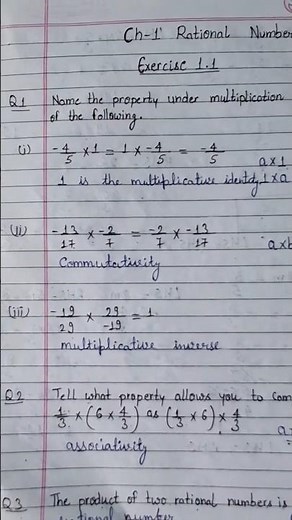 Ch-1 Rational Number
Exercise 1.1
Q1 Name the property under multiplication
of the following.
(i) -4/5 × 1 = 1 × -4/5 = -4/5 a×1
1 is the multiplicative identity 1×a
(ii) -13/17 × -2/7 = -2/7 × -13/17 a×b
Commutativity
(iii) -19/29 × 29/-19 = 1
multiplicative inverse
Q2 Tell what property allows you to com
1/3 × (6 × 4/3) as (1/3 × 6) × 4/3
associativity
Q3 The product of two rational numbers is
number